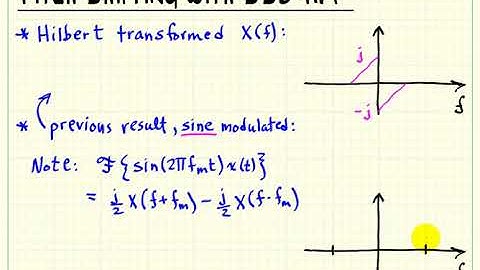 * Hilbert transformed X(f):
j
-j
f
* previous result, sine modulated:
Note: ℱ{sin(2πfₘt)x(t)}
= j/2 X(f+fₘ) - j/2 X(f-fₘ)